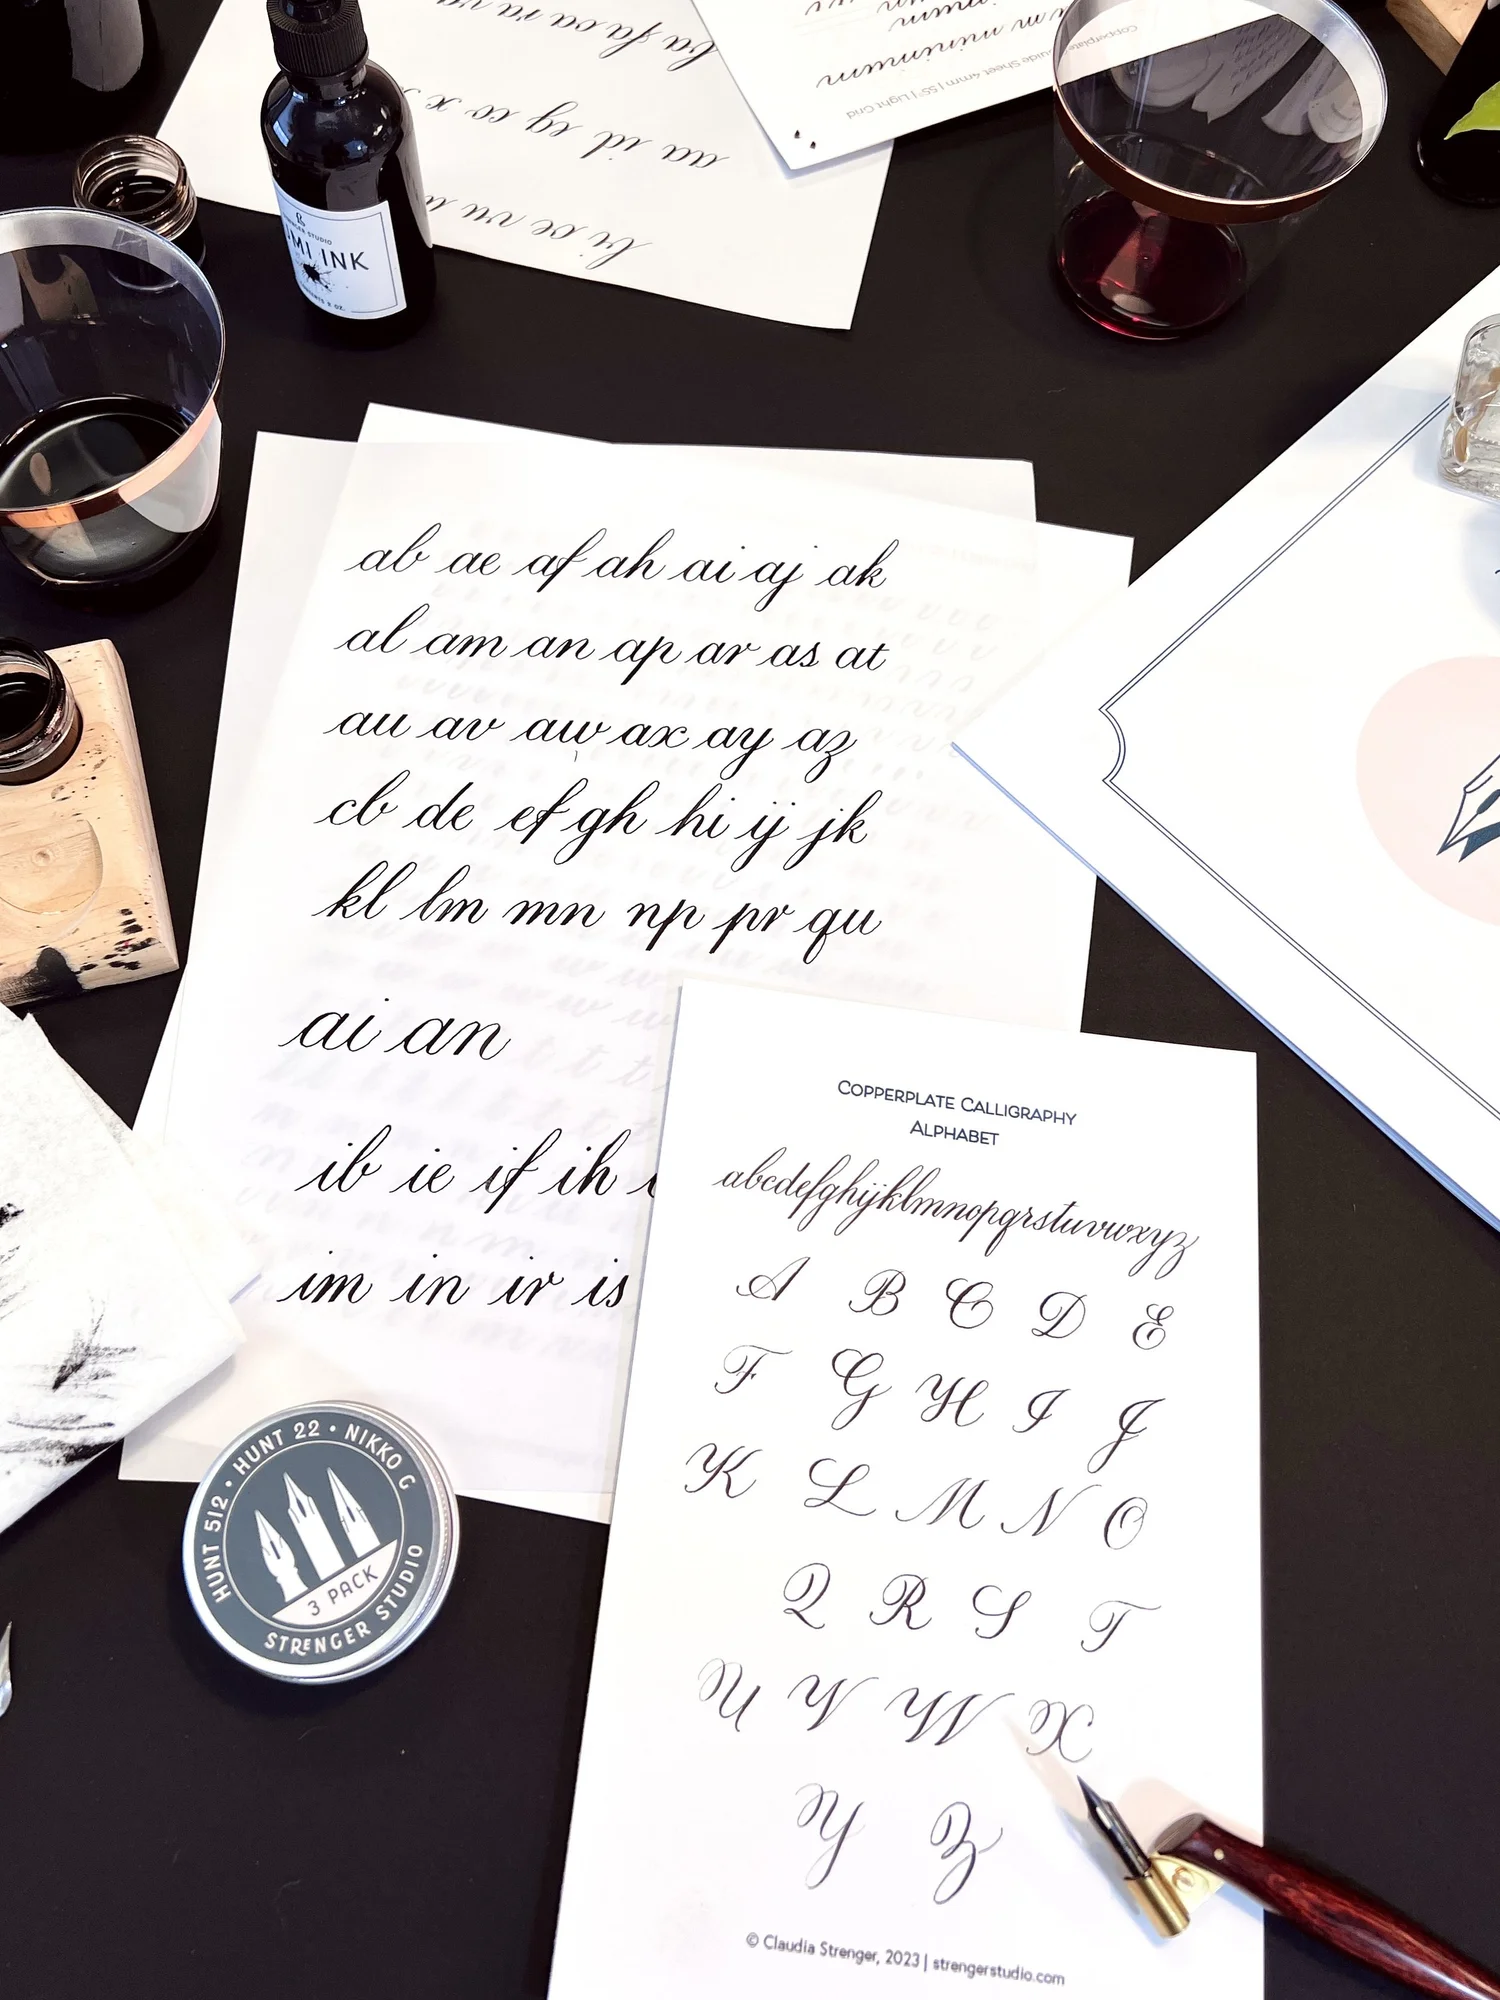 UMI INK
minimum
Copperplate Guide Sheet 4mm | 55° | Light Grid
aa id eg co x
ab ae af ah ai aj ak
al am an ap ar as at
au av aw ax ay az
cb de ef gh hi ij jk
kl lm mn np pr qu
ai an
ib ie if ih
im in ir is
HUNT 512 • HUNT 22 • NIKKO G
3 PACK
STRENGER STUDIO
COPPERPLATE CALLIGRAPHY
ALPHABET
abcdefghijklmnopqrstuvwxyz
A B C D E
F G H I J
K L M N O
Q R S T
U V W X
Y Z
© Claudia Strenger, 2023 | strengerstudio.com